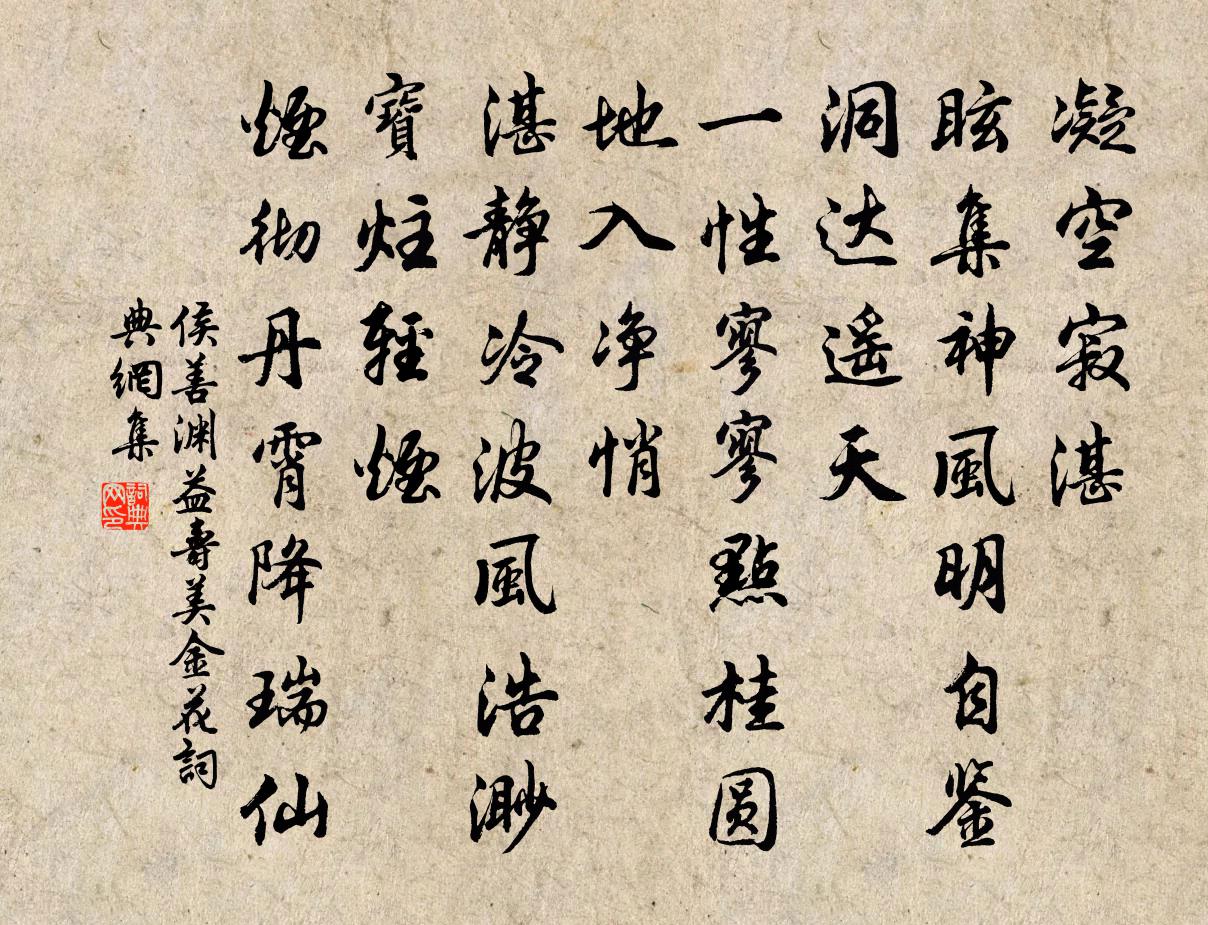 凝空寂湛
眩集神風明自鉴
洞达遥天
一性寥寥點桂圆
地入净悄
湛静冷波風浩渺
寶炷輕煙
煙彻丹霄降瑞仙
侯善渊益壽美金花詞
典網集
詞典